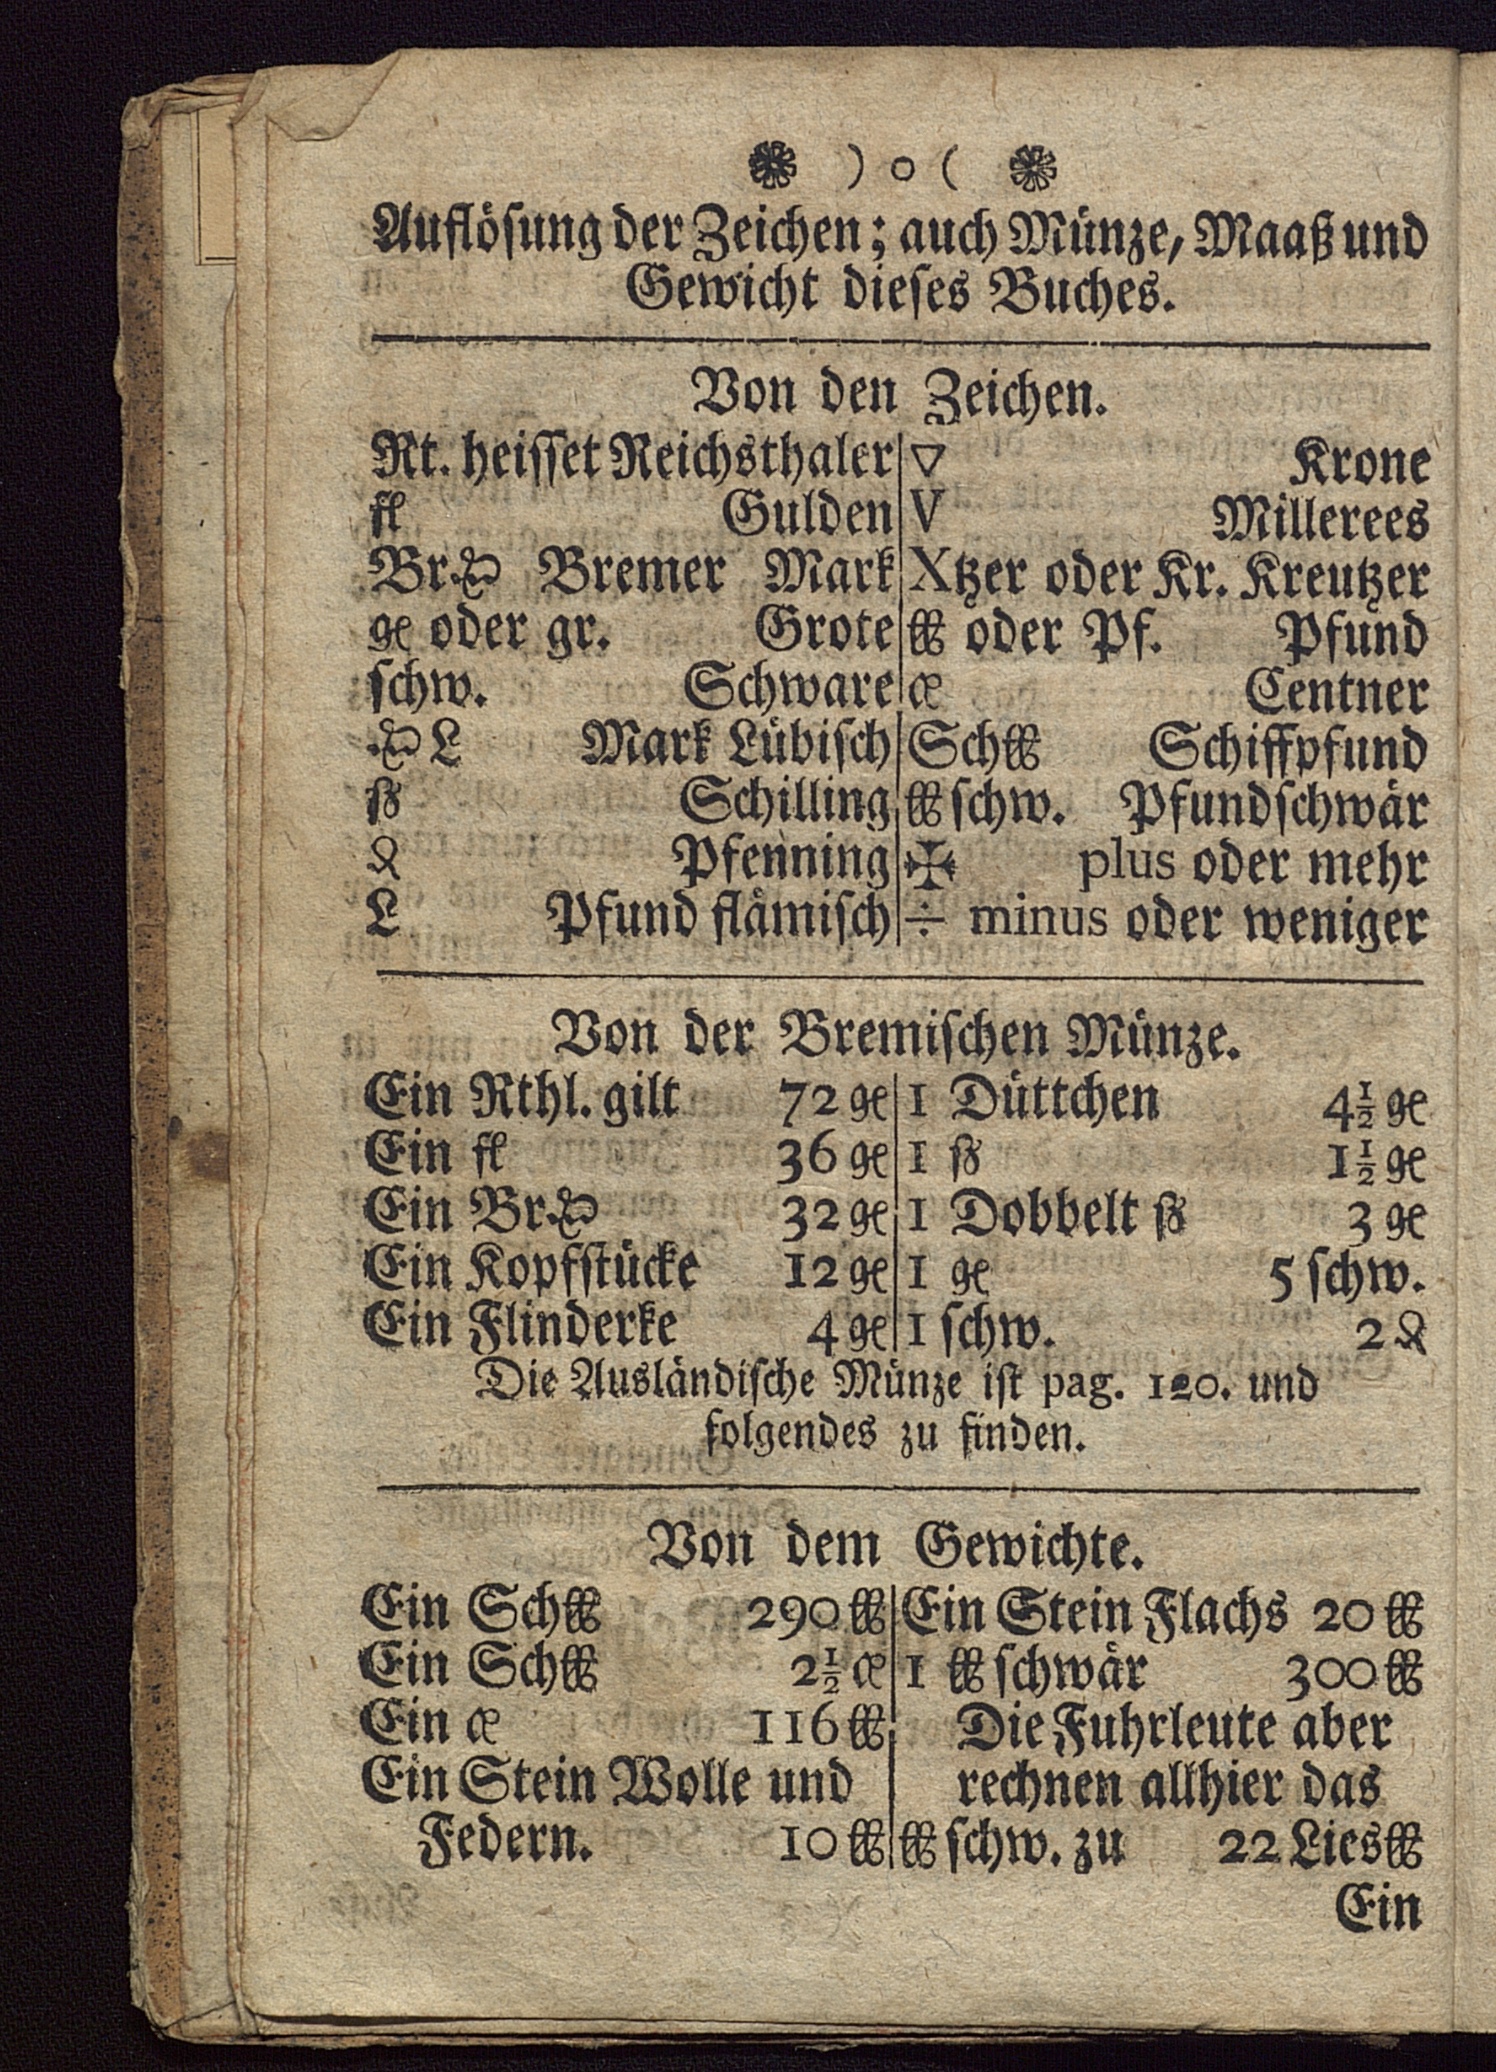 ) o (
Auflösung der Zeichen; auch Münze, Maaß und
Gewicht dieses Buches.
Von den Zeichen.
Rt. heisset Reichsthaler
fl Gulden
Br. Bremer Mark
gr oder gr. Grote
schw. Schware
L Mark Lübisch
ß Schilling
₰ Pfenning
L Pfund flämisch
▽ Krone
V Millerees
Xtzer oder Kr. Kreutzer
℔ oder Pf. Pfund
Centner
Sch℔ Schiffpfund
℔ schw. Pfundschwär
✠ plus oder mehr
÷ minus oder weniger
Von der Bremischen Münze.
Ein Rthl. gilt 72 gr
Ein fl 36 gr
Ein Br. 32 gr
Ein Kopfstücke 12 gr
Ein Flinderke 4 gr
1 Düttchen 4½ gr
1 ß 1½ gr
1 Dobbelt ß 3 gr
1 gr 5 schw.
1 schw. 2 ₰
Die Ausländische Münze ist pag. 120. und
folgendes zu finden.
Von dem Gewichte.
Ein Sch℔ 290 ℔
Ein Sch℔ 2½
Ein 116 ℔
Ein Stein Wolle und
Federn. 10 ℔
Ein Stein Flachs 20 ℔
1 ℔ schwär 300 ℔
Die Fuhrleute aber
rechnen allhier das
℔ schw. zu 22 Lies℔
Ein